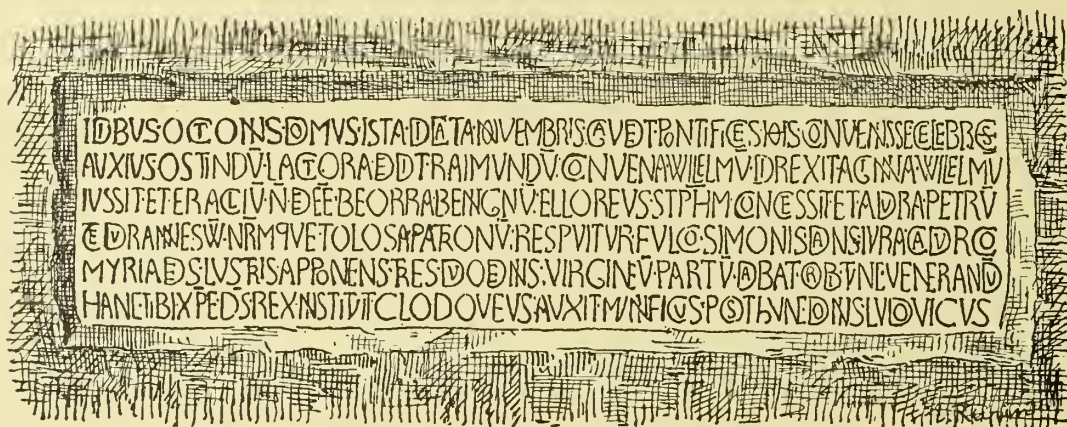 IDBVS·OCTONIS·DOMVS·ISTA·DEI·ĒTA·NOVEMBRIS·GAVDET·PONTIFICES·HOS·CONVENISSE·CELEBRES
AUXIVS·OSTINDV̄·LACTORA·DEDIT·RAIMVNDV̄·CONVENA·WILLELMV̄·DIREXIT·AGINNA·WILLELMV̄
IVSSIT·ET·ERACLIV̄·N̄·DEE·BEORRA·BENIGNV̄·ELLOREVS·STEPHM·CONCESSIT·ET·ADVRA·PETRV̄
TE·DVRANNE·SW̄·NRM·QVE·TOLOSA·PATRONV̄·RESPVITVR·FVLCO·SIMONIS·DANS·IVRA·CADVRCO
MYRIADES·LVSTRIS·APPONENS·TRES·DVODENIS·VIRGINEV̄·PARTV̄·DABAT·ORBI·TVNC·VENERANDV̄
HANC·TIBI·XPE·DS·REX·INSTITVIT·CLODOVEVS·AVXIT·MVNIFICVS·POST·hVNC·DN̄S·LVDOVICVS